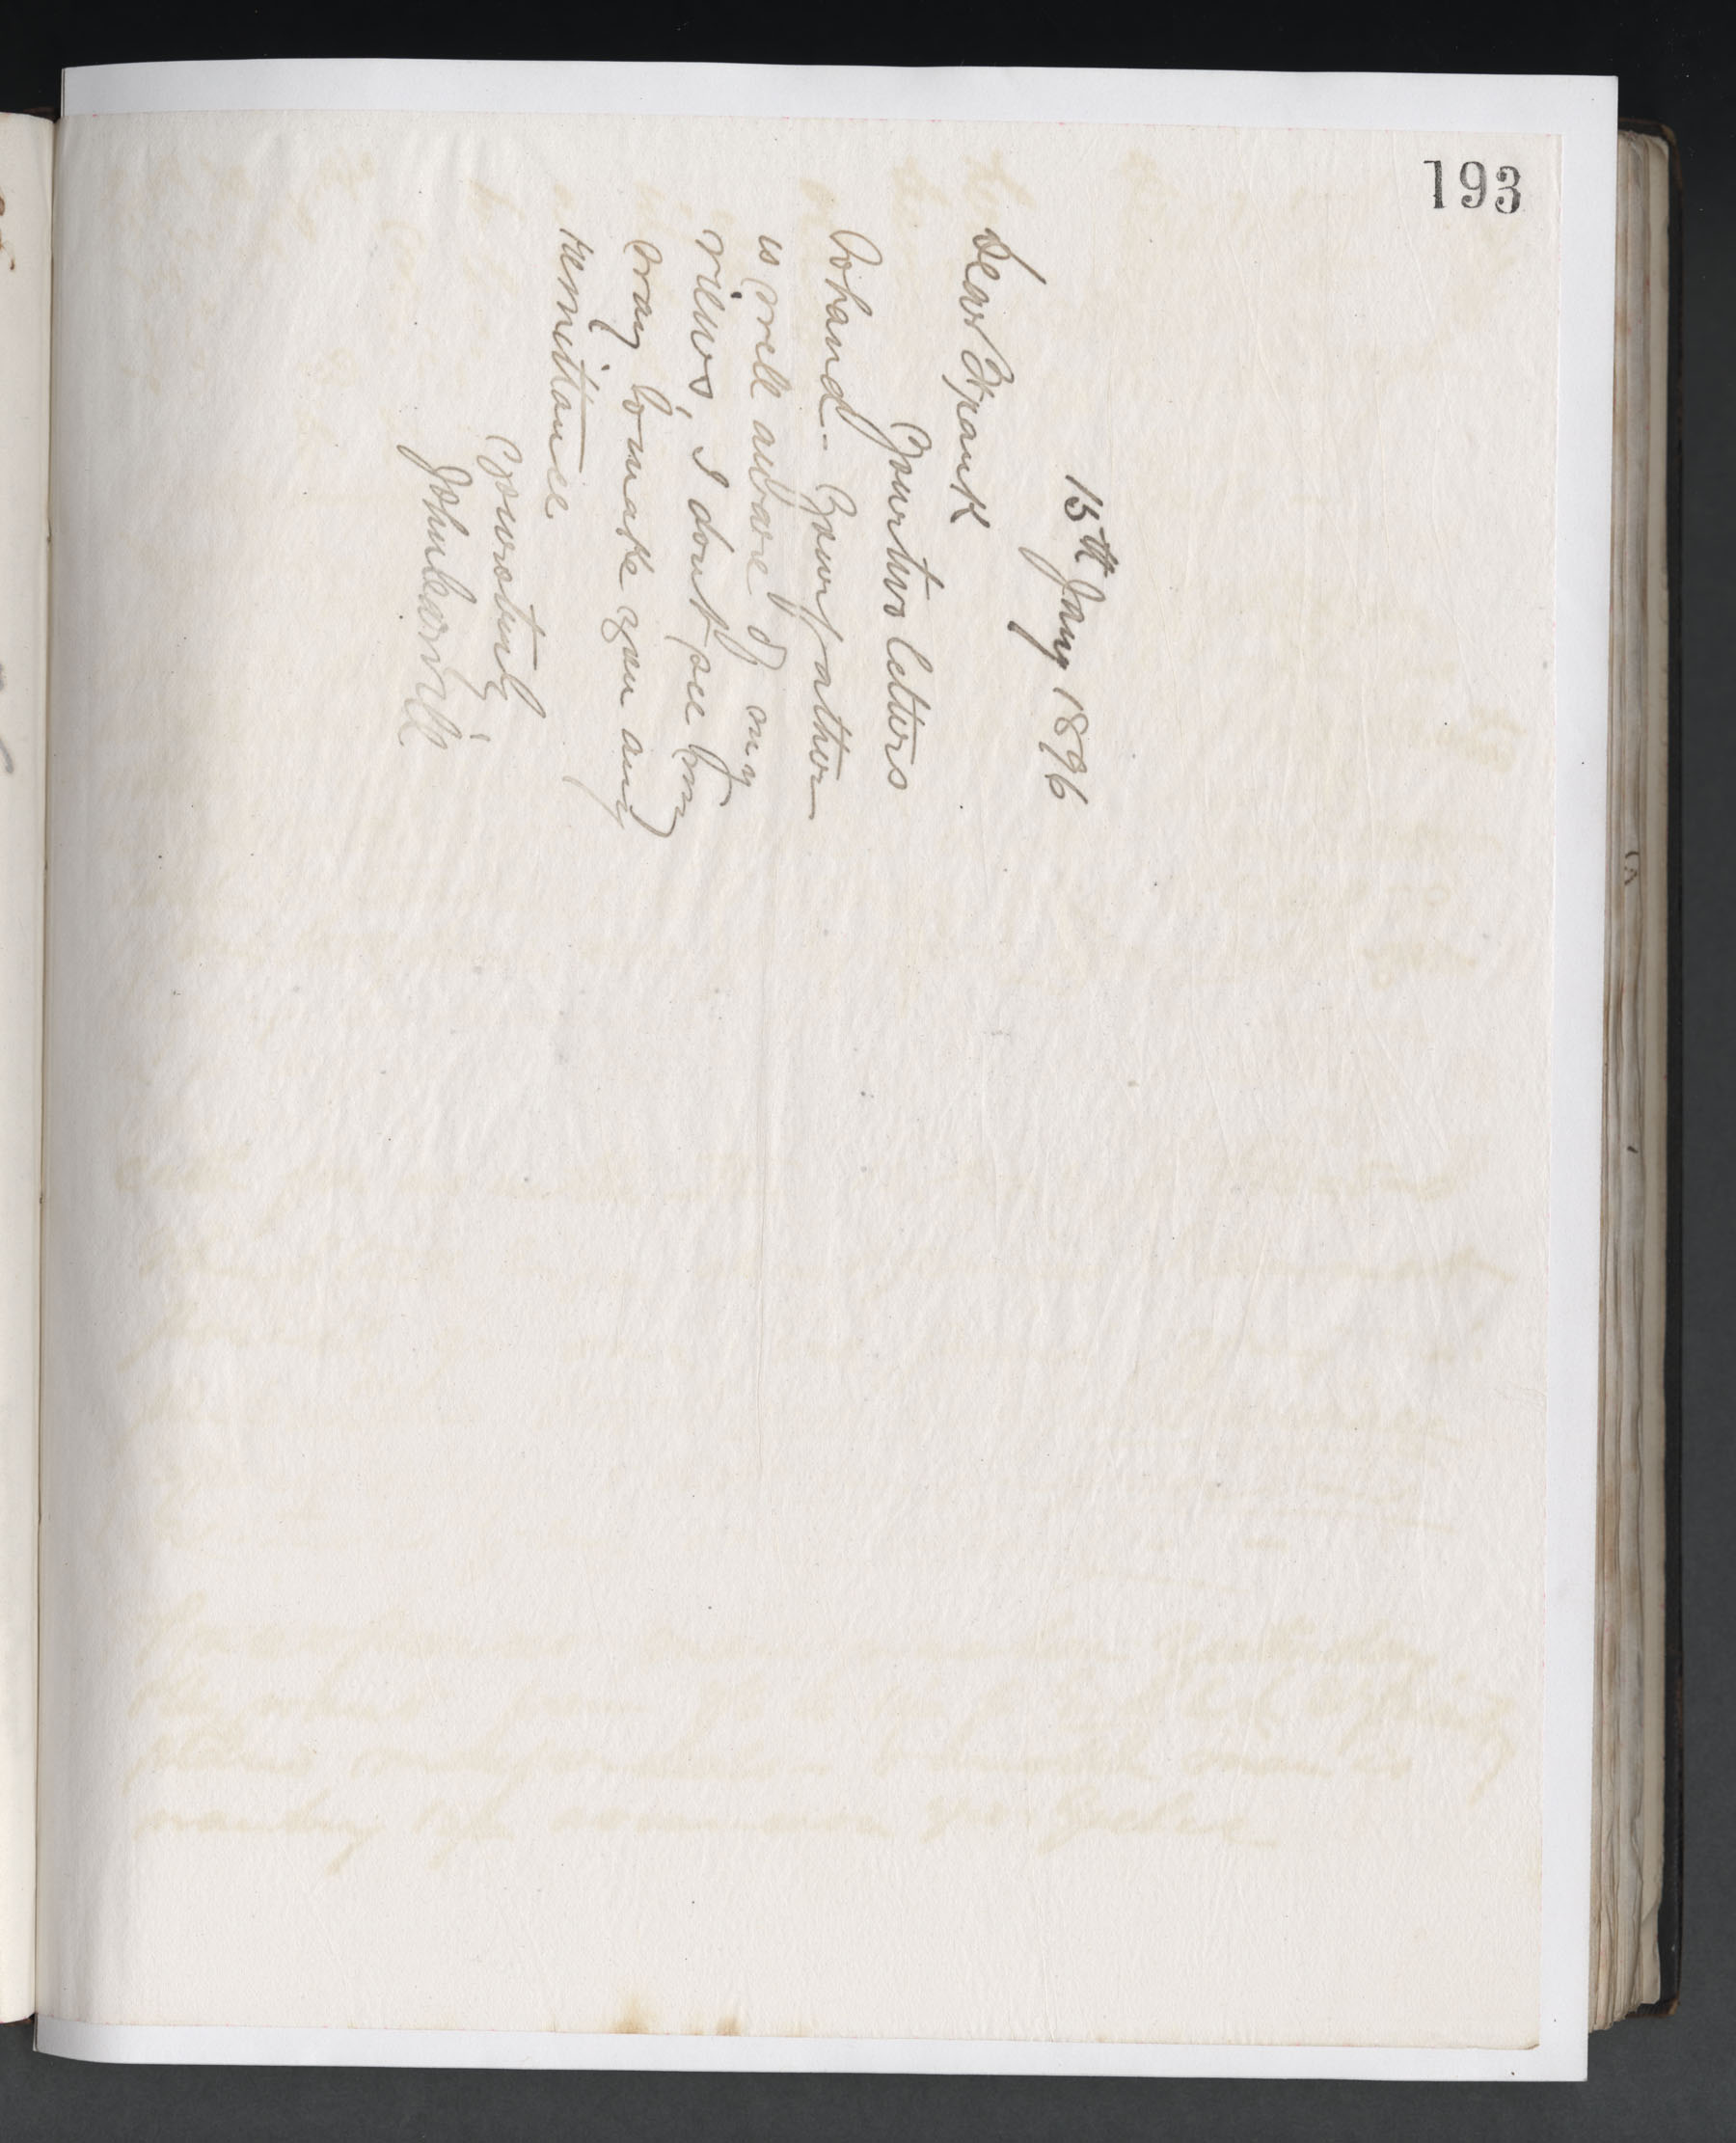 193
15th Jany 1896
Dear Frank
Your two letters
to hand.. Your father
is well aware of my
views, I dont see my
way to make you any
remittance
Yours truly
John